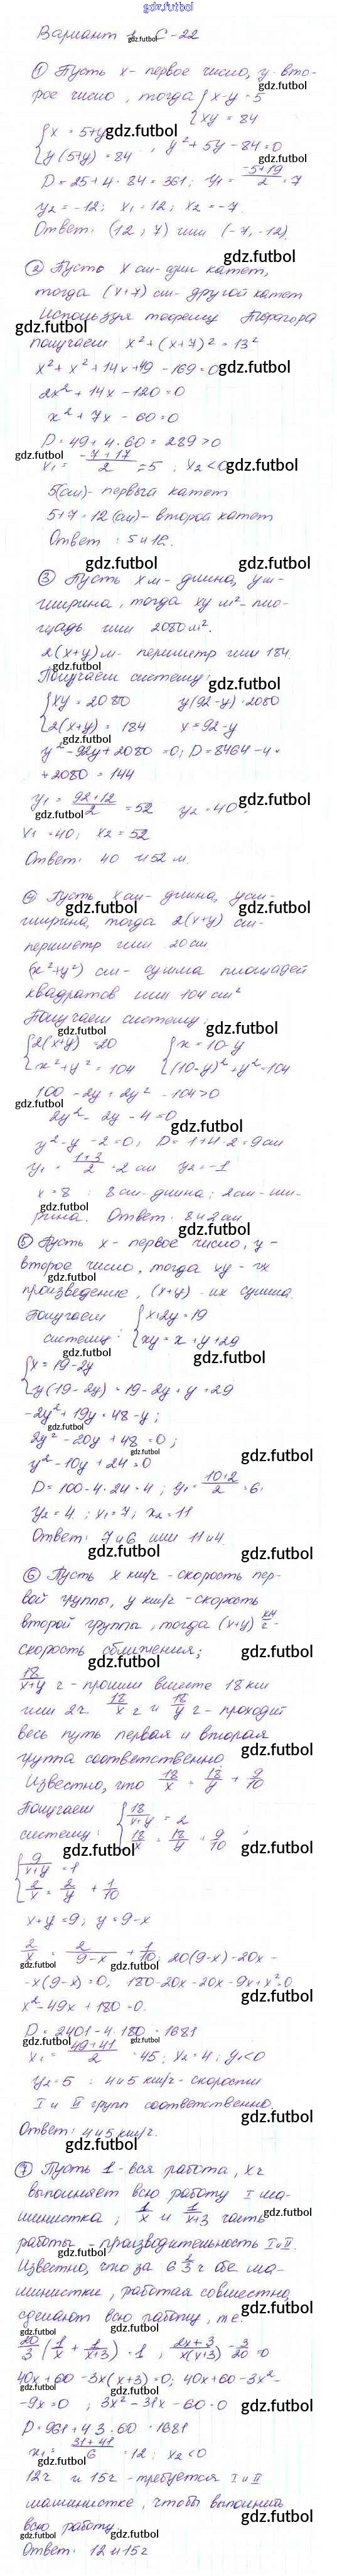 gdz.futbol
Вариант 1 С-22
① Пусть x - первое число, y - вто-
рое число, тогда { x-y=5
{ xy = 84
{ x = 5+y
{ y(5+y) = 84 , y² + 5y - 84 = 0
D = 25 + 4 · 84 = 361; y₁ = (-5+19)/2 = 7
y₂ = -12; x₁ = 12; x₂ = -7.
Ответ: (12; 7) или (-7; -12).
② Пусть x см - один катет,
тогда (x+7) см - другой катет
Используя теорему Пифагора
получаем x² + (x+7)² = 13²
x² + x² + 14x + 49 - 169 = 0
2x² + 14x - 120 = 0
x² + 7x - 60 = 0
D = 49 + 4 · 60 = 289 > 0
x₁ = (-7+17)/2 = 5 ; x₂ < 0
5(см) - первый катет
5+7 = 12(см) - второй катет
Ответ: 5 и 12.
③ Пусть x м - длина, y м -
ширина, тогда xy м² - пло-
щадь или 2080 м².
2(x+y) м - периметр или 184.
Получаем систему:
{ xy = 2080 y(92-y) = 2080
{ 2(x+y) = 184 x = 92-y
y² - 92y + 2080 = 0; D = 8464 - 4 ·
· 2080 = 144
y₁ = (92+12)/2 = 52 y₂ = 40
x₁ = 40; x₂ = 52
Ответ: 40 и 52 м.
④ Пусть x см - длина, y см -
ширина, тогда 2(x+y) см -
периметр или 20 см
(x²+y²) см - сумма площадей
квадратов или 104 см²
Получаем систему:
{ 2(x+y) = 20 { x = 10-y
{ x² + y² = 104 { (10-y)² + y² = 104
100 - 2y + 2y² - 104 > 0
2y² - 2y - 4 = 0
y² - y - 2 = 0; D = 1+4·2 = 9 см
y₁ = (1+3)/2 = 2 см y₂ = -1
x = 8 : 8 см - длина; 2 см - ши-
рина. Ответ: 8 и 2 см
⑤ Пусть x - первое число, y -
второе число, тогда xy - их
произведение, (x+y) - их сумма.
Получаем { x+2y = 19
систему: { xy = x + y + 29
{ x = 19-2y
{ y(19-2y) = 19-2y + y + 29
-2y² + 19y = 48 - y;
2y² - 20y + 48 = 0;
y² - 10y + 24 = 0
D = 100 - 4 · 24 = 4; y₁ = (10+2)/2 = 6;
y₂ = 4; x₁ = 7; x₂ = 11
Ответ: 7 и 6 или 11 и 4.
⑥ Пусть x км/ч - скорость пер-
вой группы, y км/ч - скорость
второй группы, тогда (x+y) км/ч -
скорость сближения;
18/(x+y) ч - прошли вместе 18 км
или 2ч. 18/x ч и 18/y ч - проходит
весь путь первая и вторая
группа соответственно
Известно, что 18/x = 18/y + 9/10
Получаем { 18/(x+y) = 2
систему: { 18/x = 18/y + 9/10 ;
{ 9/(x+y) = 1
{ 2/x = 2/y + 1/10
x+y = 9; y = 9-x
2/x = 2/(9-x) + 1/10; 20(9-x) - 20x -
- x(9-x) = 0; 180 - 20x - 20x - 9x + x² = 0
x² - 49x + 180 = 0.
D = 2401 - 4 · 180 = 1681
x₁ = (49+41)/2 = 45; x₂ = 4; y₁ < 0
y₂ = 5 : 4 и 5 км/ч - скорости
I и II групп соответственно.
Ответ: 4 и 5 км/ч.
⑦ Пусть 1 - вся работа, x ч
выполняет всю работу I ма-
шинистка; 1/x и 1/(x+3) часть
работы - производительность I и II.
Известно, что за 6 2/3 ч обе ма-
шинистки, работая совместно,
сделают всю работу, т.е.
20/3 (1/x + 1/(x+3)) = 1 ; (2x+3)/(x(x+3)) - 3/20 = 0
40x + 60 - 3x(x+3) = 0; 40x + 60 - 3x² -
- 9x = 0 ; 3x² - 31x - 60 = 0
D = 961 + 4·3·60 = 1681
x₁ = (31+41)/6 = 12; x₂ < 0
12ч и 15ч - требуется I и II
машинистке, чтобы выполнить
всю работу.
Ответ: 12 и 15ч